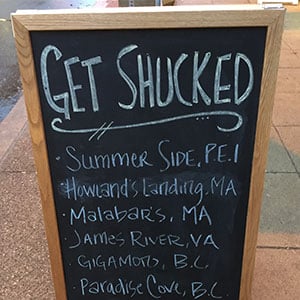 GET SHUCKED
· SUMMER SIDE, P.E.I
Howland's Landing, MA
· Malabar's, MA
· JAMES RIVER, VA
· GIGAMOTS, B.C.
· Paradise Cove, B.C